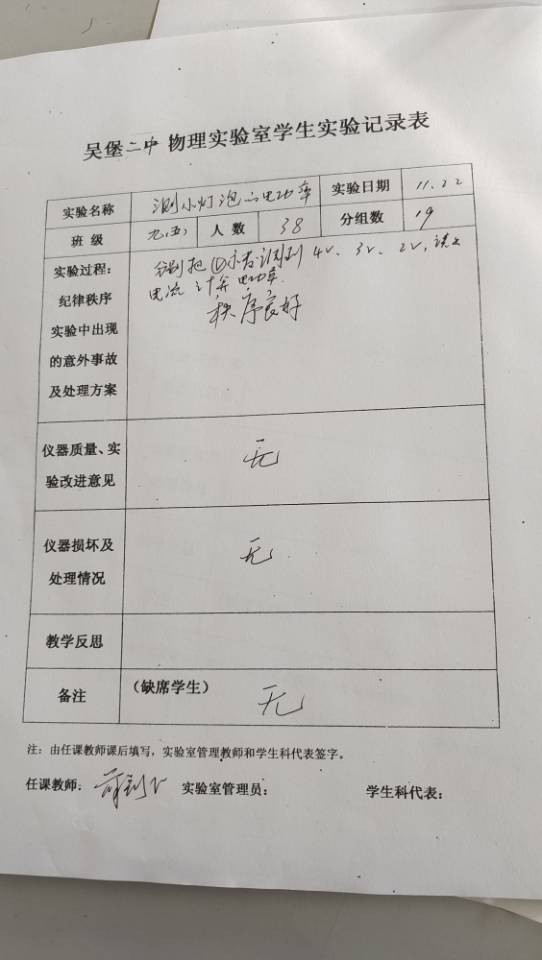 吴堡二中 物理实验室学生实验记录表
实验名称 测小灯泡的电功率 实验日期 11.22
班 级 九(五) 人 数 38 分组数 19
实验过程: 分别把Ⓥ示数调到4V、3V、2V,读出
纪律秩序 电流 计算电功率
秩序良好
实验中出现
的意外事故
及处理方案
仪器质量、实
验改进意见
无
仪器损坏及
处理情况
无
教学反思
备注 (缺席学生) 无
注:由任课教师课后填写,实验室管理教师和学生科代表签字。
任课教师: 实验室管理员: 学生科代表: